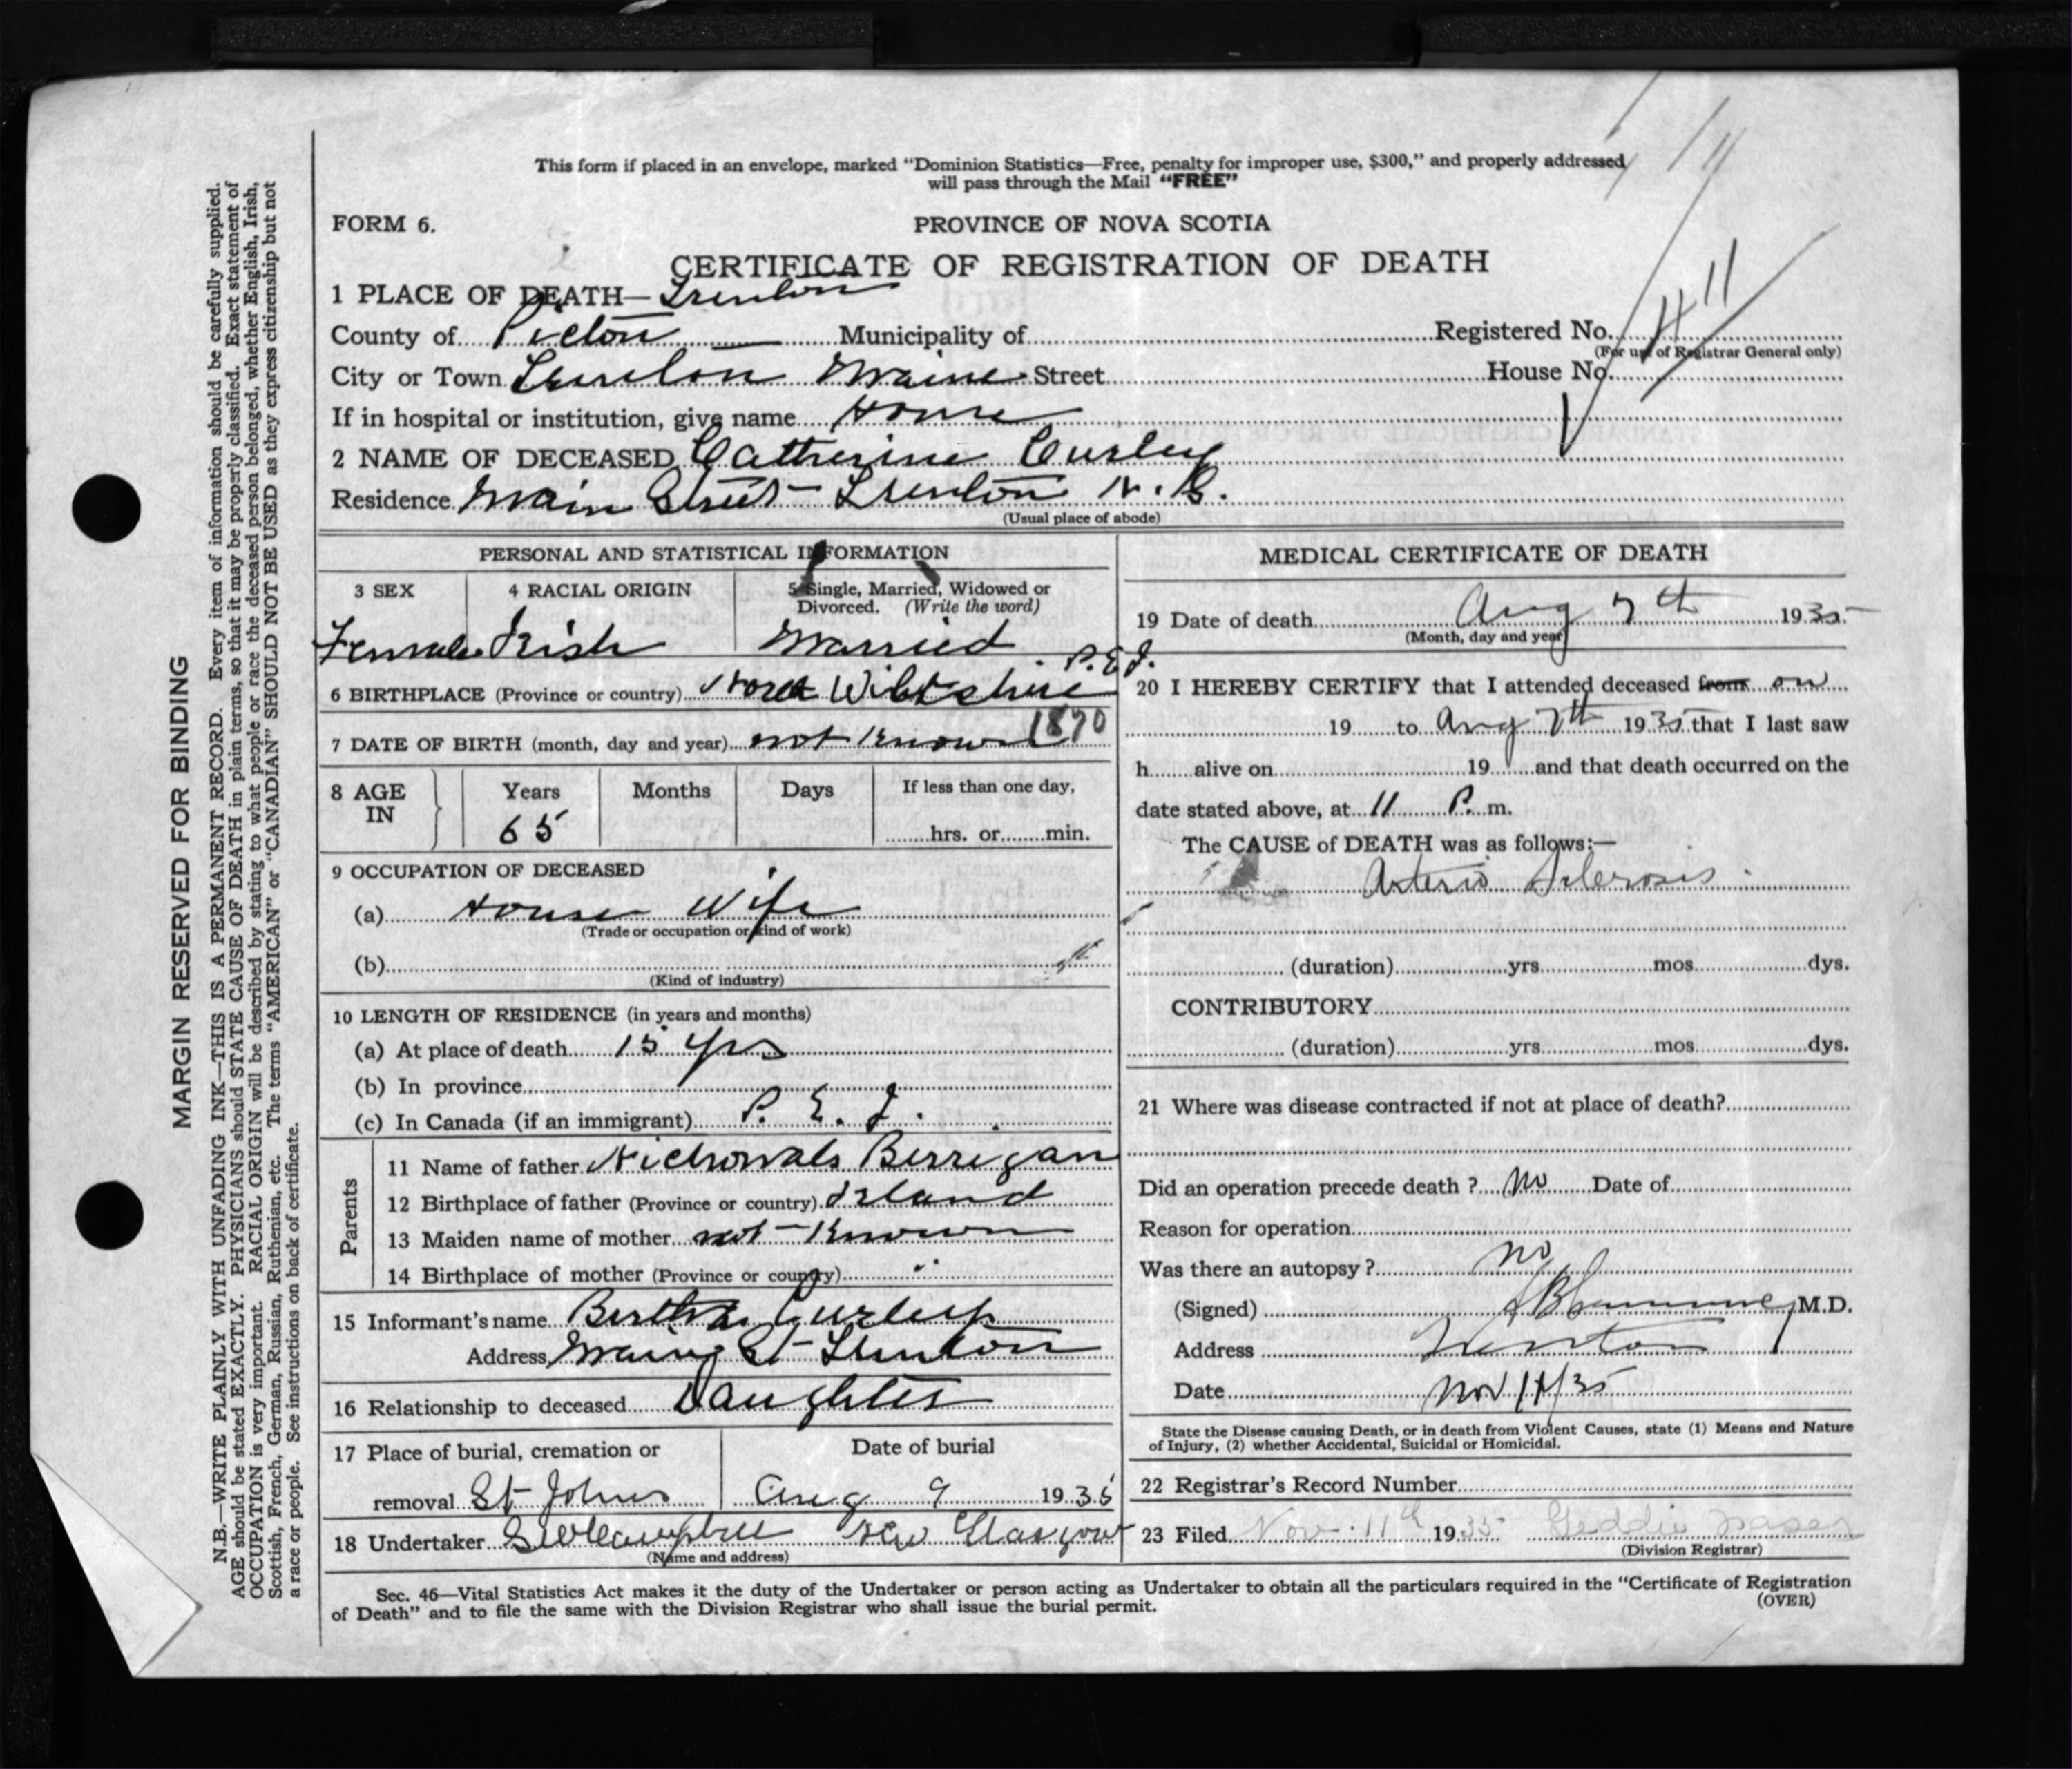 This form if placed in an envelope, marked “Dominion Statistics—Free, penalty for improper use, $300,” and properly addressed
will pass through the Mail “FREE”
FORM 6.
PROVINCE OF NOVA SCOTIA
CERTIFICATE OF REGISTRATION OF DEATH
1 PLACE OF DEATH— Trenton
County of Pictou Municipality of Registered No.
(For use of Registrar General only)
City or Town Trenton Maine Street House No.
If in hospital or institution, give name Home
2 NAME OF DECEASED Catherine Curley
Residence Main Street Trenton N. S.
(Usual place of abode)
PERSONAL AND STATISTICAL INFORMATION
3 SEX 4 RACIAL ORIGIN 5 Single, Married, Widowed or
Divorced. (Write the word)
Female Irish Married
P.E.I.
6 BIRTHPLACE (Province or country) North Wiltshire
7 DATE OF BIRTH (month, day and year) not known 1870
8 AGE IN Years Months Days If less than one day,
65 hrs. or min.
9 OCCUPATION OF DECEASED
(a) House Wife
(Trade or occupation or kind of work)
(b)
(Kind of industry)
10 LENGTH OF RESIDENCE (in years and months)
(a) At place of death 15 yrs
(b) In province
(c) In Canada (if an immigrant) P. E. I.
Parents
11 Name of father Berrigan
12 Birthplace of father (Province or country) Island
13 Maiden name of mother not known
14 Birthplace of mother (Province or country) "
15 Informant's name Bertha Curley
Address Maine St Trenton
16 Relationship to deceased Daughter
17 Place of burial, cremation or Date of burial
removal St Johns Aug 9 1935
18 Undertaker Campbell New Glasgow
(Name and address)
MEDICAL CERTIFICATE OF DEATH
19 Date of death Aug 7th 1935
(Month, day and year)
20 I HEREBY CERTIFY that I attended deceased from on
19 to Aug 7th 1935 that I last saw
h alive on 19 and that death occurred on the
date stated above, at 11 P. m.
The CAUSE of DEATH was as follows:—
Arterio Sclerosis
(duration) yrs. mos. dys.
CONTRIBUTORY
(duration) yrs. mos. dys.
21 Where was disease contracted if not at place of death?
Did an operation precede death ? No Date of
Reason for operation
Was there an autopsy ? no
(Signed) M.D.
Address Trenton
Date Nov 11/35
State the Disease causing Death, or in death from Violent Causes, state (1) Means and Nature
of Injury, (2) whether Accidental, Suicidal or Homicidal.
22 Registrar's Record Number
23 Filed Nov. 11th 1935 Geddie Fraser
(Division Registrar)
Sec. 46—Vital Statistics Act makes it the duty of the Undertaker or person acting as Undertaker to obtain all the particulars required in the “Certificate of Registration
of Death” and to file the same with the Division Registrar who shall issue the burial permit.
(OVER)
MARGIN RESERVED FOR BINDING
N.B.—WRITE PLAINLY WITH UNFADING INK—THIS IS A PERMANENT RECORD. Every item of information should be carefully supplied.
AGE should be stated EXACTLY. PHYSICIANS should STATE CAUSE OF DEATH in plain terms, so that it may be properly classified. Exact statement of
OCCUPATION is very important. RACIAL ORIGIN will be described by stating to what people or race the deceased person belonged, whether English, Irish,
Scottish, French, German, Russian, Ruthenian, etc. The terms “AMERICAN” or “CANADIAN” SHOULD NOT BE USED as they express citizenship but not
a race or people. See instructions on back of certificate.